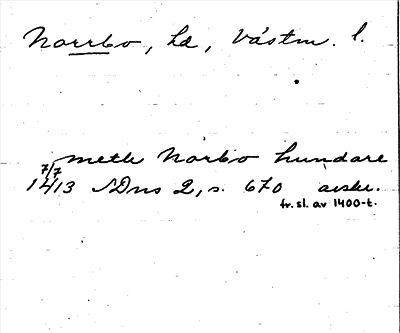 Norrbo, hd, Västm. l.
meth Norbo hundare
7/7
1413 SDns 2, s. 670 avskr.
fr. sl. av 1400-t.